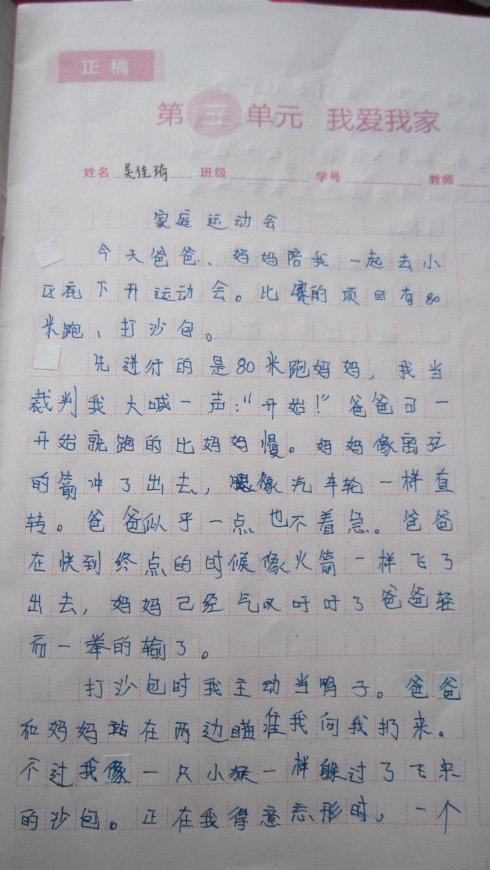 正稿
第三单元 我爱我家
姓名 吴佳琦 班级 学号 教师
家庭运动会
今天爸爸、妈妈陪我一起去小
区底下开运动会。比赛的项目有80
米跑、打沙包。
先进行的是80米跑妈妈，我当
裁判我大喊一声：“开始！”爸爸可一
开始就跑的比妈妈慢。妈妈像离弦
的箭冲了出去，腿像汽车轮一样直
转。爸爸似乎一点也不着急。爸爸
在快到终点的时候像火箭一样飞了
出去，妈妈已经气叹吁吁了爸爸轻
而一举的输了。
打沙包时我主动当鸭子。爸爸
和妈妈站在两边瞄准我向我扔来。
不过我像一只小猴一样躲过了飞来
的沙包。正在我得意态形时。一个